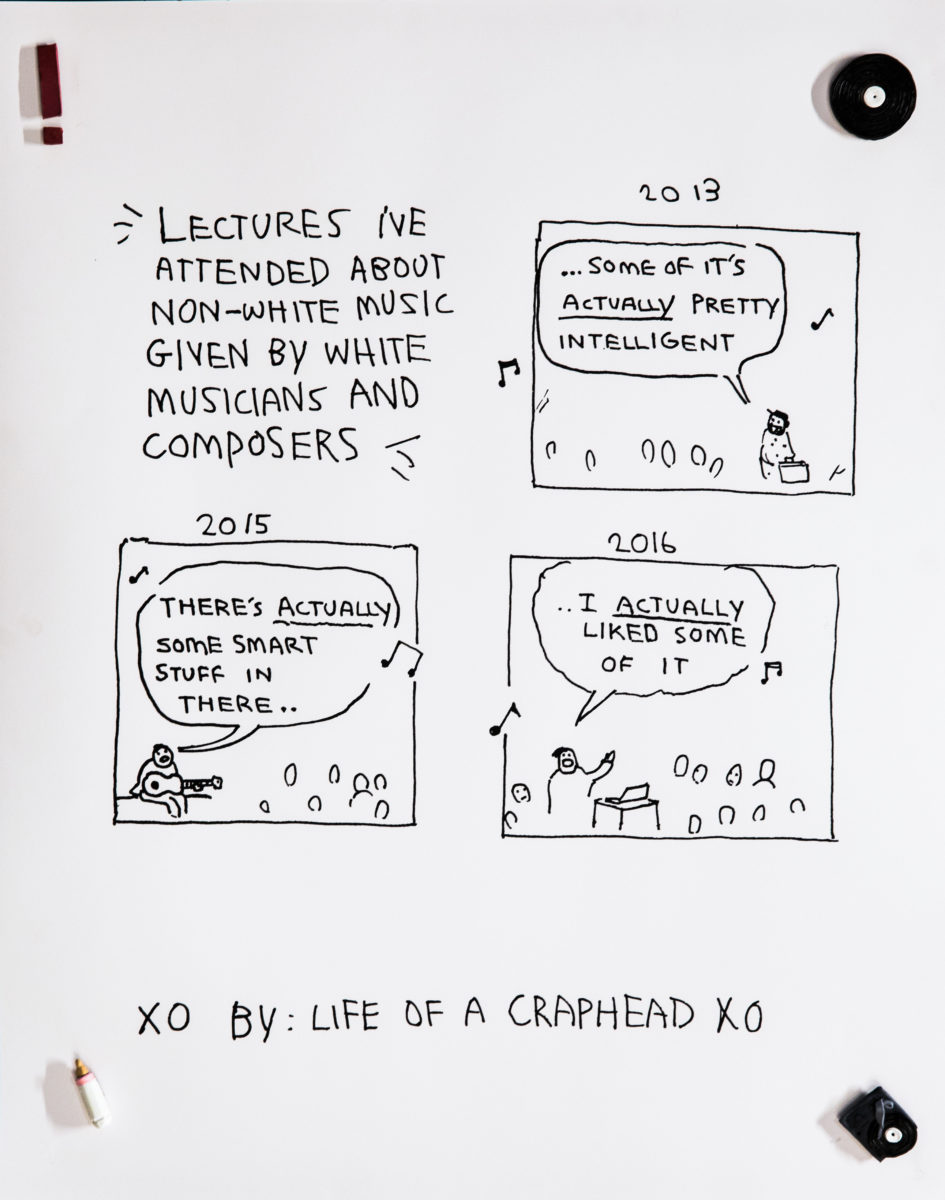 LECTURES I'VE
ATTENDED ABOUT
NON-WHITE MUSIC
GIVEN BY WHITE
MUSICIANS AND
COMPOSERS
2013
...SOME OF IT'S
ACTUALLY PRETTY
INTELLIGENT
2015
THERE'S ACTUALLY
SOME SMART
STUFF IN
THERE..
2016
..I ACTUALLY
LIKED SOME
OF IT
XO BY: LIFE OF A CRAPHEAD XO